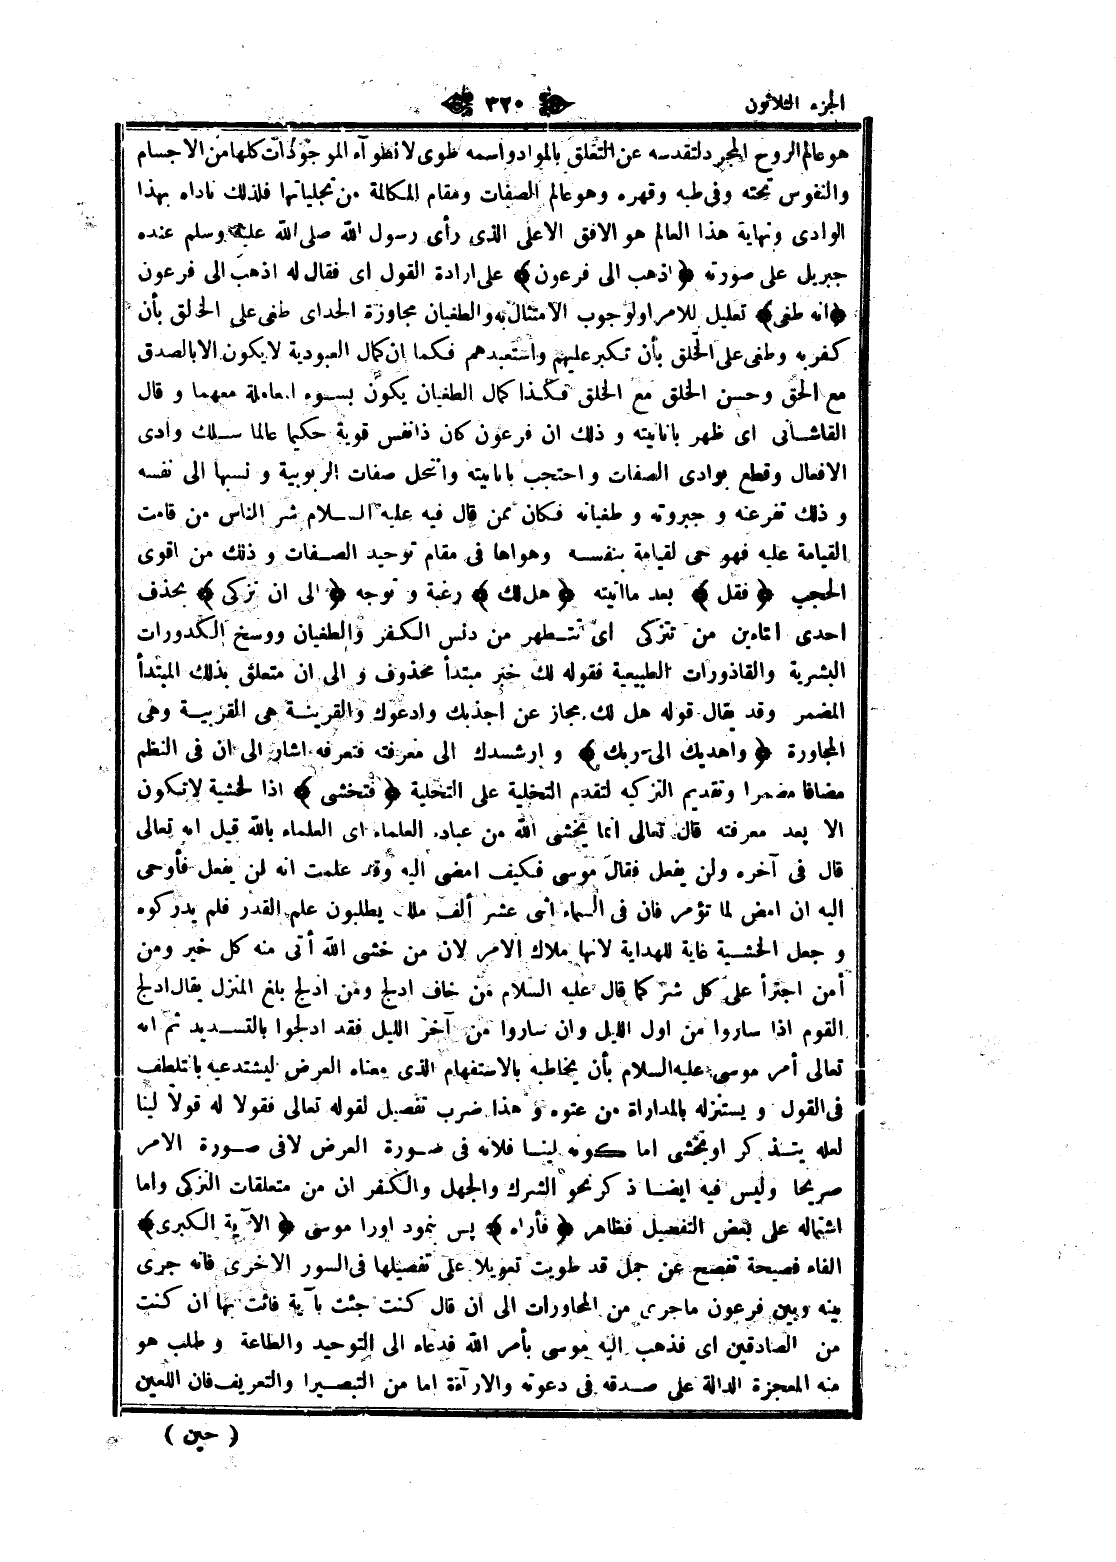 الجزء الثلاثون
٣٢٠
هو عالم الروح المجرد لتقدسه عن التعلق بالمواد واسمه طوى لانطوآء الموجودات كلها من الاجسام
والنفوس تحته وفى طيه وقهره وهو عالم الصفات ومقام المكالمة من تجلياتها فلذلك ناداه بهذا
الوادى ونهاية هذا العالم هو الافق الاعلى الذى رأى رسول الله صلى الله عليه وسلم عنده
جبريل على صورته ﴿ اذهب الى فرعون ﴾ على ارادة القول اى فقال له اذهب الى فرعون
﴿ انه طغى ﴾ تعليل للامر اولوجوب الامتثال به والطغيان مجاوزة الحد اى طغى على الخالق بأن
كفر به وطغى على الخلق بأن تكبر عليهم واستعبدهم فكما ان كمال العبودية لا يكون الا بالصدق
مع الحق وحسن الخلق مع الخلق فكذا كمال الطغيان يكون بسوء المعاملة معهما و قال
القاشانى اى ظهر بانانيته و ذلك ان فرعون كان ذا نفس قوية حكيما عالما سلك وادى
الافعال وقطع بوادى الصفات و احتجب بانانيته وانتحل صفات الربوبية و نسبها الى نفسه
و ذلك تفرعنه و جبروته و طغيانه فكان ممن قال فيه عليه السلام شر الناس من قامت
القيامة عليه فهو حى لقيامة بنفسه وهواها فى مقام توحيد الصفات و ذلك من اقوى
الحجب ﴿ فقل ﴾ بعد ما اتيته ﴿ هل لك ﴾ رغبة و توجه ﴿ الى ان تزكى ﴾ بحذف
احدى التاءين من تتزكى اى تتطهر من دنس الكفر والطغيان ووسخ الكدورات
البشرية والقاذورات الطبيعية فقوله لك خبر مبتدأ محذوف و الى ان متعلق بذلك المبتدأ
المضمر وقد يقال قوله هل لك مجاز عن اجذبك وادعوك والقرينة هى المقربية وهى
المجاورة ﴿ واهديك الى ربك ﴾ و ارشدك الى معرفته فتعرفه اشار الى ان فى النظم
مضافا مضمرا وتقديم التزكيه لتقدم التخلية على التحلية ﴿ فتخشى ﴾ اذا لخشية لا تكون
الا بعد معرفته قال تعالى انما يخشى الله من عباده العلماء اى العلماء بالله قيل انه تعالى
قال فى آخره ولن يفعل فقال موسى فكيف امضى اليه وقد علمت انه لن يفعل فأوحى
اليه ان امض لما تؤمر فان فى السماء اثنى عشر ألف ملك يطلبون علم القدر فلم يدركوه
و جعل الخشية غاية للهداية لانها ملاك الامر لان من خشى الله أتى منه كل خير ومن
أمن اجترأ على كل شر كما قال عليه السلام من خاف ادلج ومن ادلج بلغ المنزل يقال ادلج
القوم اذا ساروا من اول الليل وان ساروا من آخر الليل فقد ادلجوا بالتسديد ثم انه
تعالى أمر موسى عليه السلام بأن يخاطبه بالاستفهام الذى معناه العرض ليستدعيه بالتلطف
فى القول و يستنزله بالمداراة من عتوه و هذا ضرب تفصيل لقوله تعالى فقولا له قولا لينا
لعله يتذكر او يخشى اما كونه لينا فلانه فى صورة العرض لا فى صورة الامر
صريحا وليس فيه ايضا ذكر نحو الشرك والجهل والكفر ان من متعلقات التزكى واما
اشتماله على بعض التفصيل فظاهر ﴿ فأراه ﴾ پس بنمود اورا موسى ﴿ الآية الكبرى ﴾
الفاء فصيحة تفصح عن جمل قد طويت تعويلا على تفصيلها فى السور الاخرى فانه جرى
بينه وبين فرعون ماجرى من المحاورات الى ان قال كنت جئت بآية فائت بها ان كنت
من الصادقين اى فذهب اليه موسى بأمر الله فدعاه الى التوحيد والطاعة و طلب هو
منه المعجزة الدالة على صدقه فى دعوته والارآءة اما من التبصير او التعريف فان اللعين
( حين )